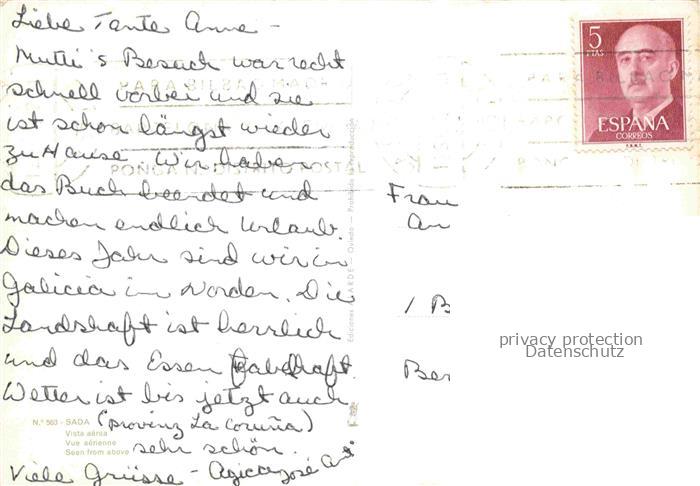 Liebe Tante Anne -
Mutti's Besuch war recht
schnell vorbei und sie
ist schon längst wieder
zu Hause. Wir haben
das Buch beendet und
machen endlich Urlaub.
Dieses Jahr sind wir in
Galicia im Norden. Die
Landschaft ist herrlich
und das Essen fabelhaft.
Wetter ist bis jetzt auch
(Provinz La Coruña)
sehr schön.
Viele Grüsse -
N.º 563 - SADA
Vista aérea
Vue aérienne
Seen from above
PONGA
POSTAL
5
PTAS
ESPAÑA
CORREOS
Frau
An
1 B
Ber
privacy protection
Datenschutz